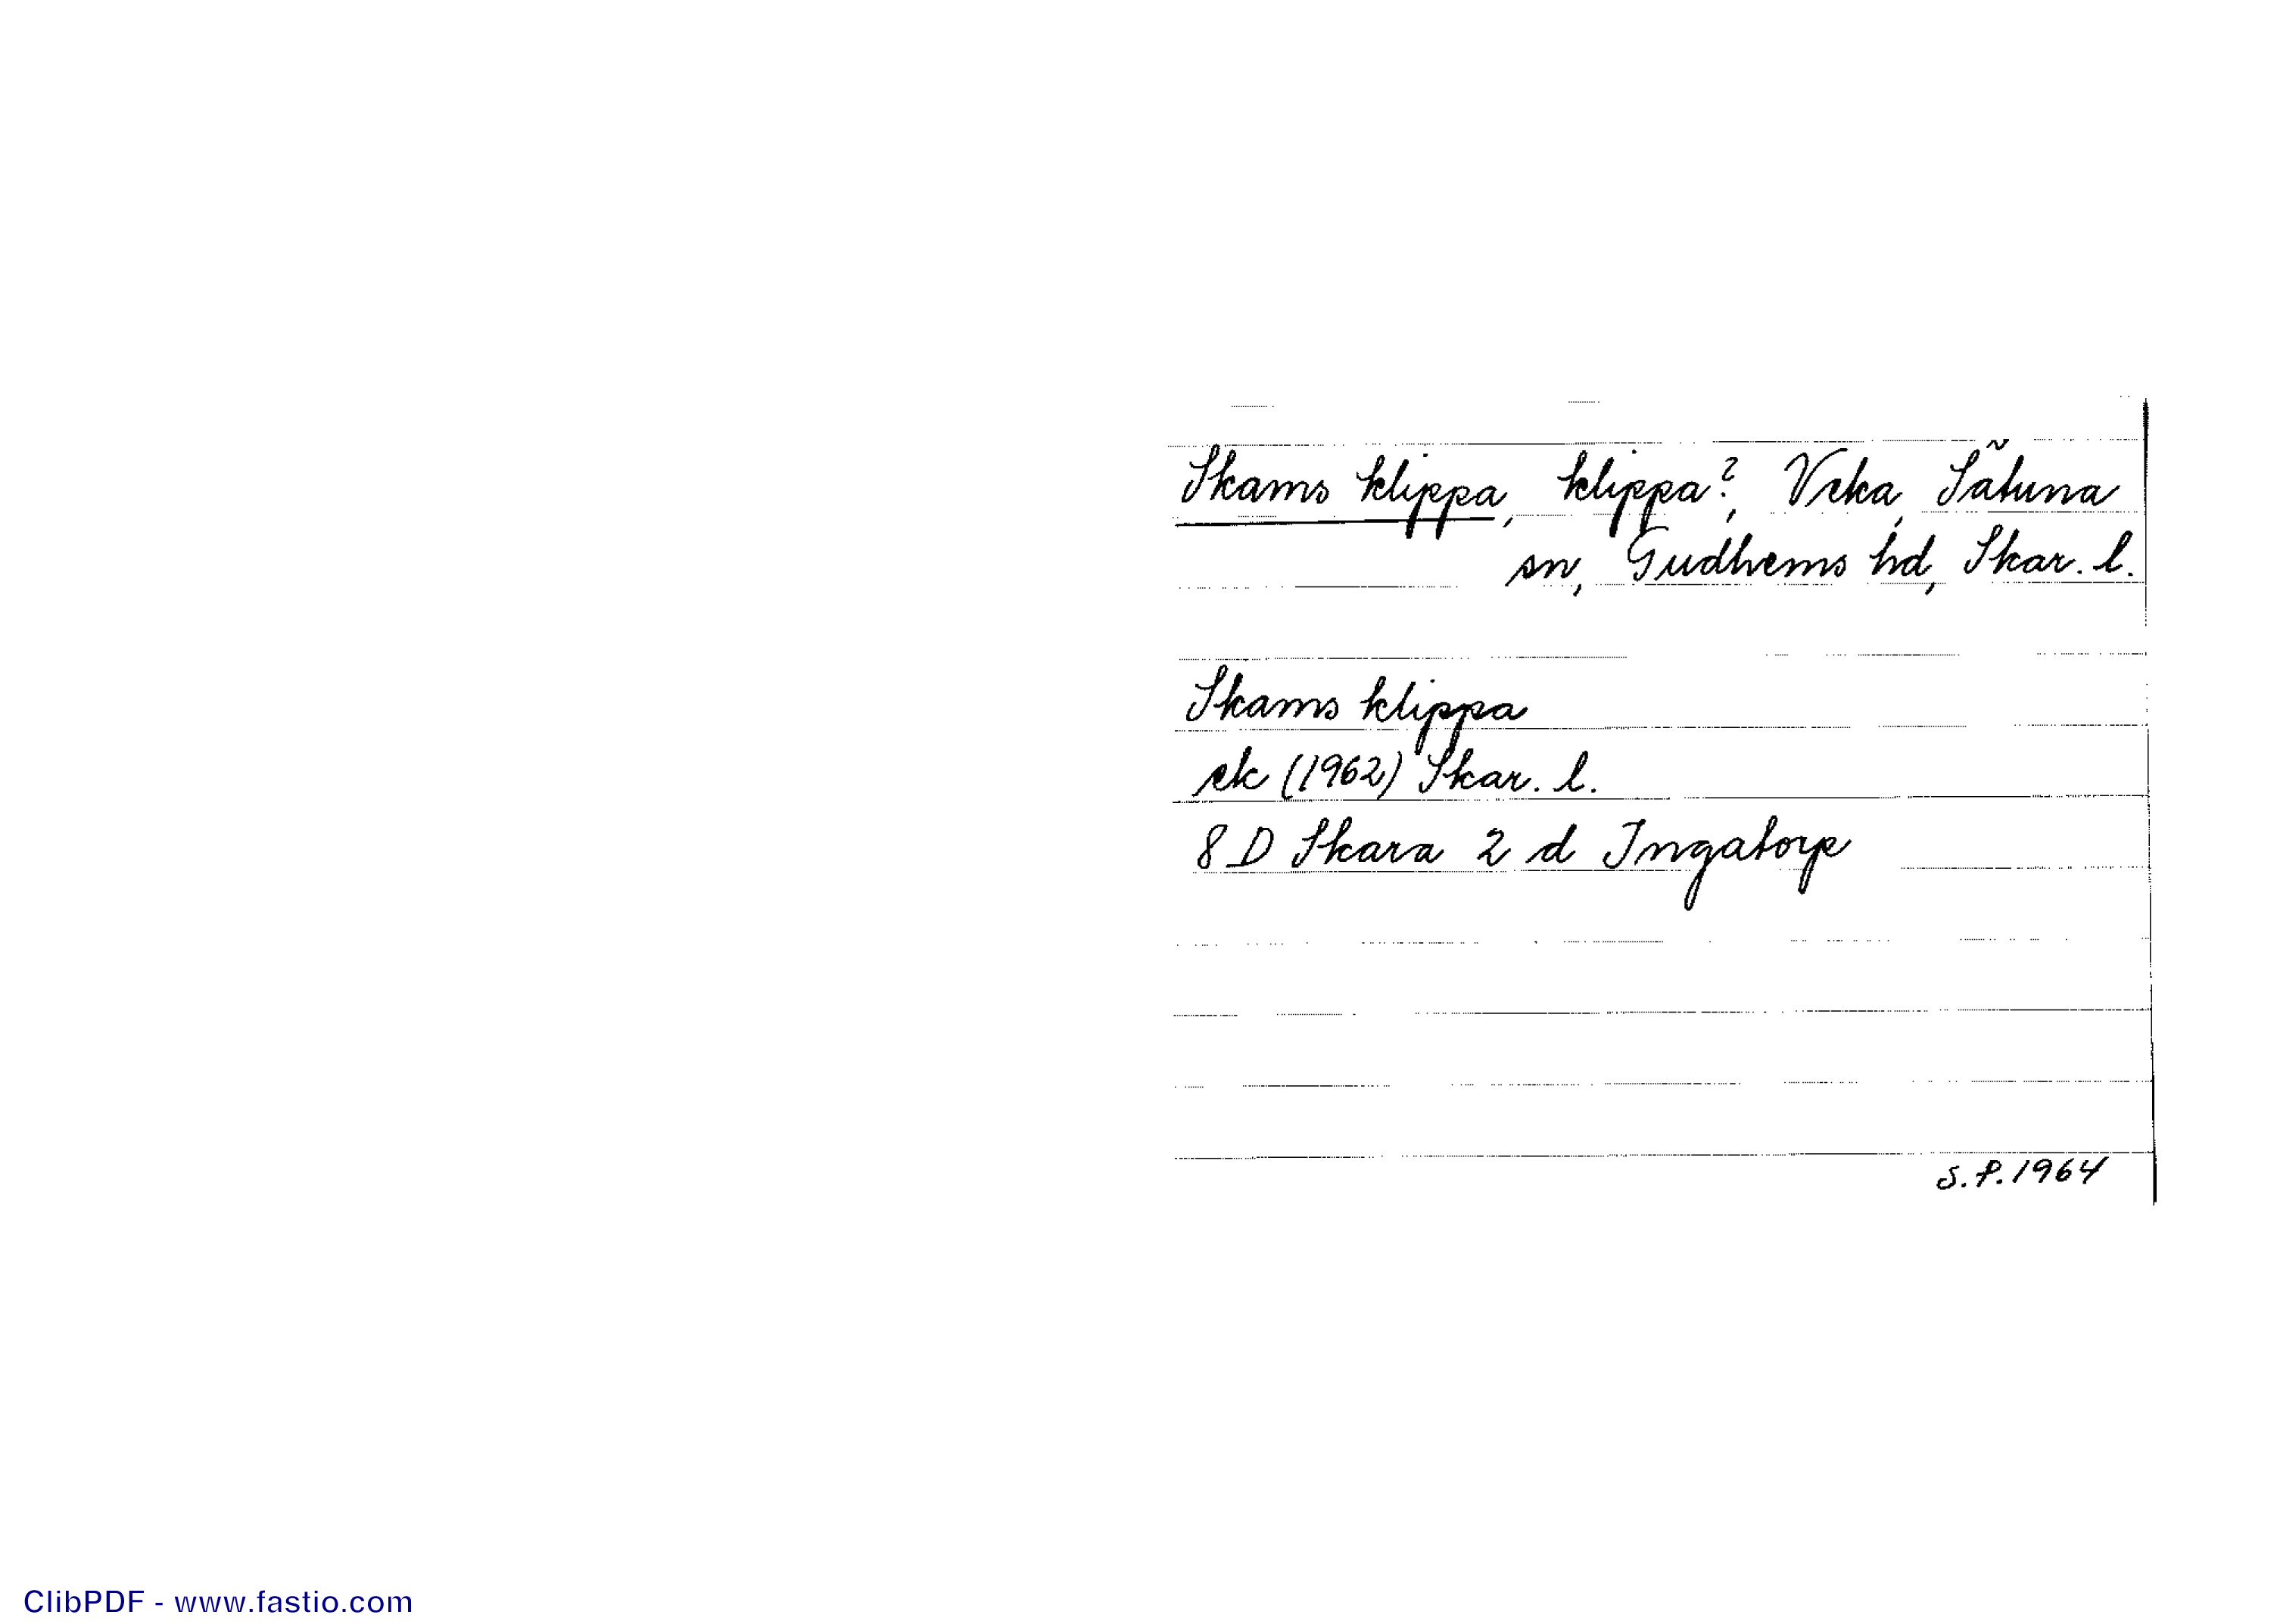 Skams klippa, klippa?, Vcka, Sätuna
sn, Gudhems hd, Skar. l.
Skams klippa
ek (1962) Skar. l.
8 D Skara 2 d Ingatorp
S.P. 1964
ClibPDF - www.fastio.com